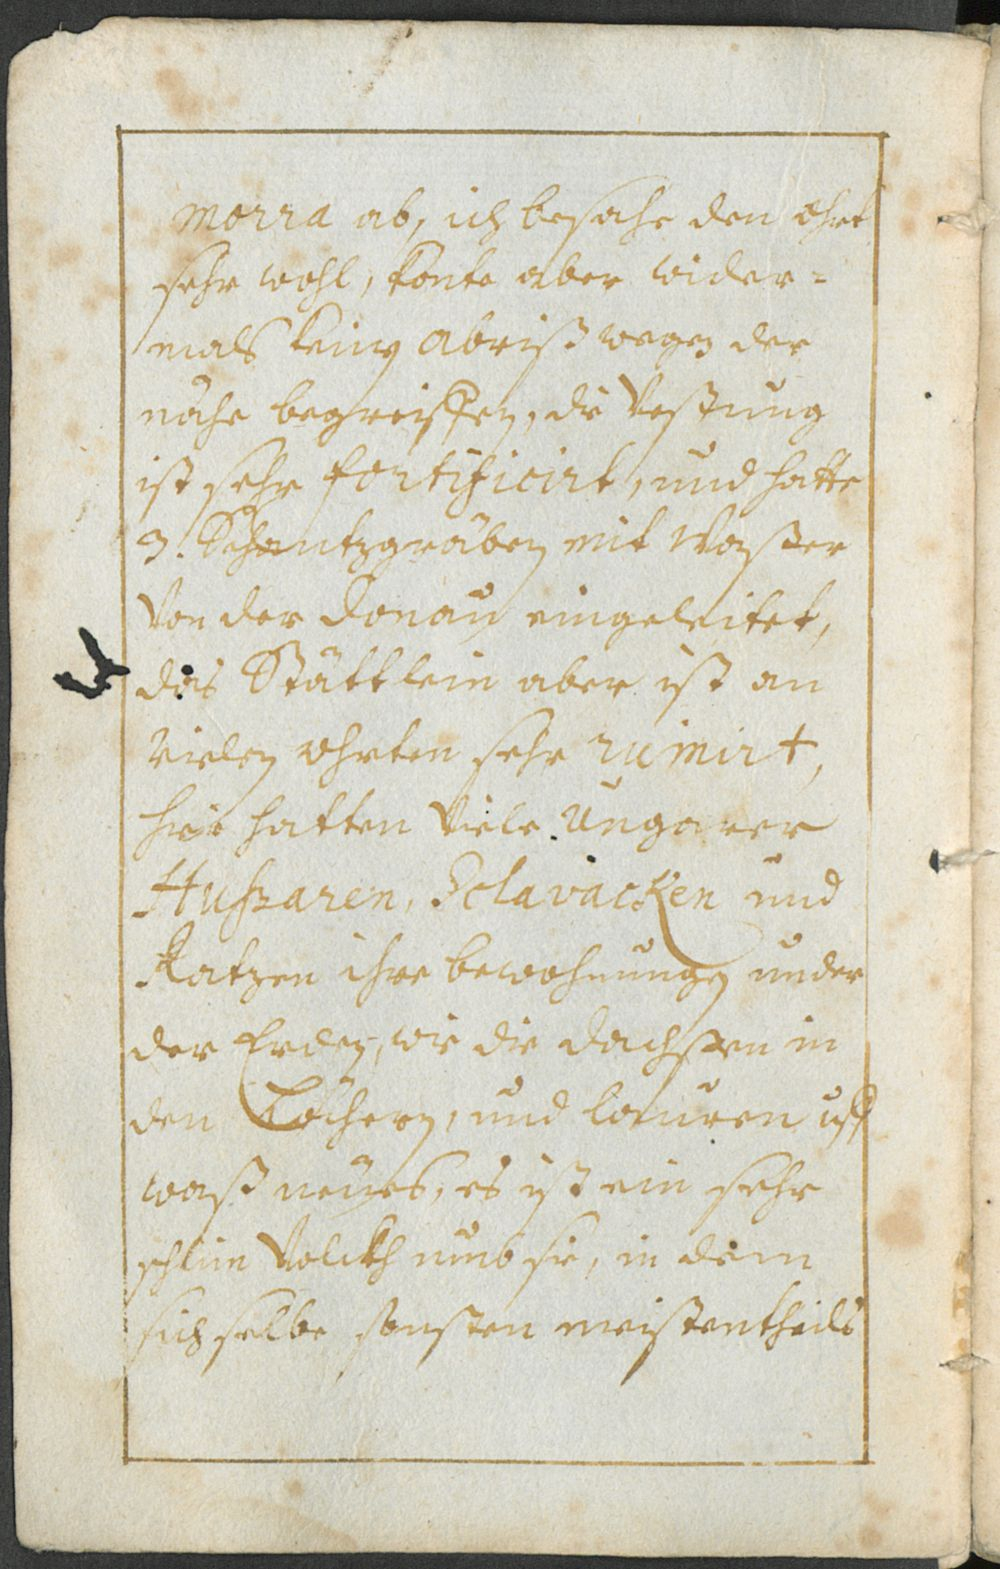 morra ab, ich besahe den ohrt
sehr wohl, konte aber wider=
mals keiny abriß wegen der
nähe begreiffen, die Vestung
ist sehr fortificirt, und hatte
3. Schantzgräben mit Waßer
Von der Donau eingeleitet,
das Stättlein aber ist an
vielen ohrten sehr ruinirt,
hier hatten Viele Ungarer
Hußaren, Sclavacken und
Ratzen ihre bewohnungen under
der Erden, wie die Dachßen in
den Löchern, und lauren uff
waß neües, es ist ein sehr
schlim Volckh umb sie, in dem
sich selbe sonsten meistentheils